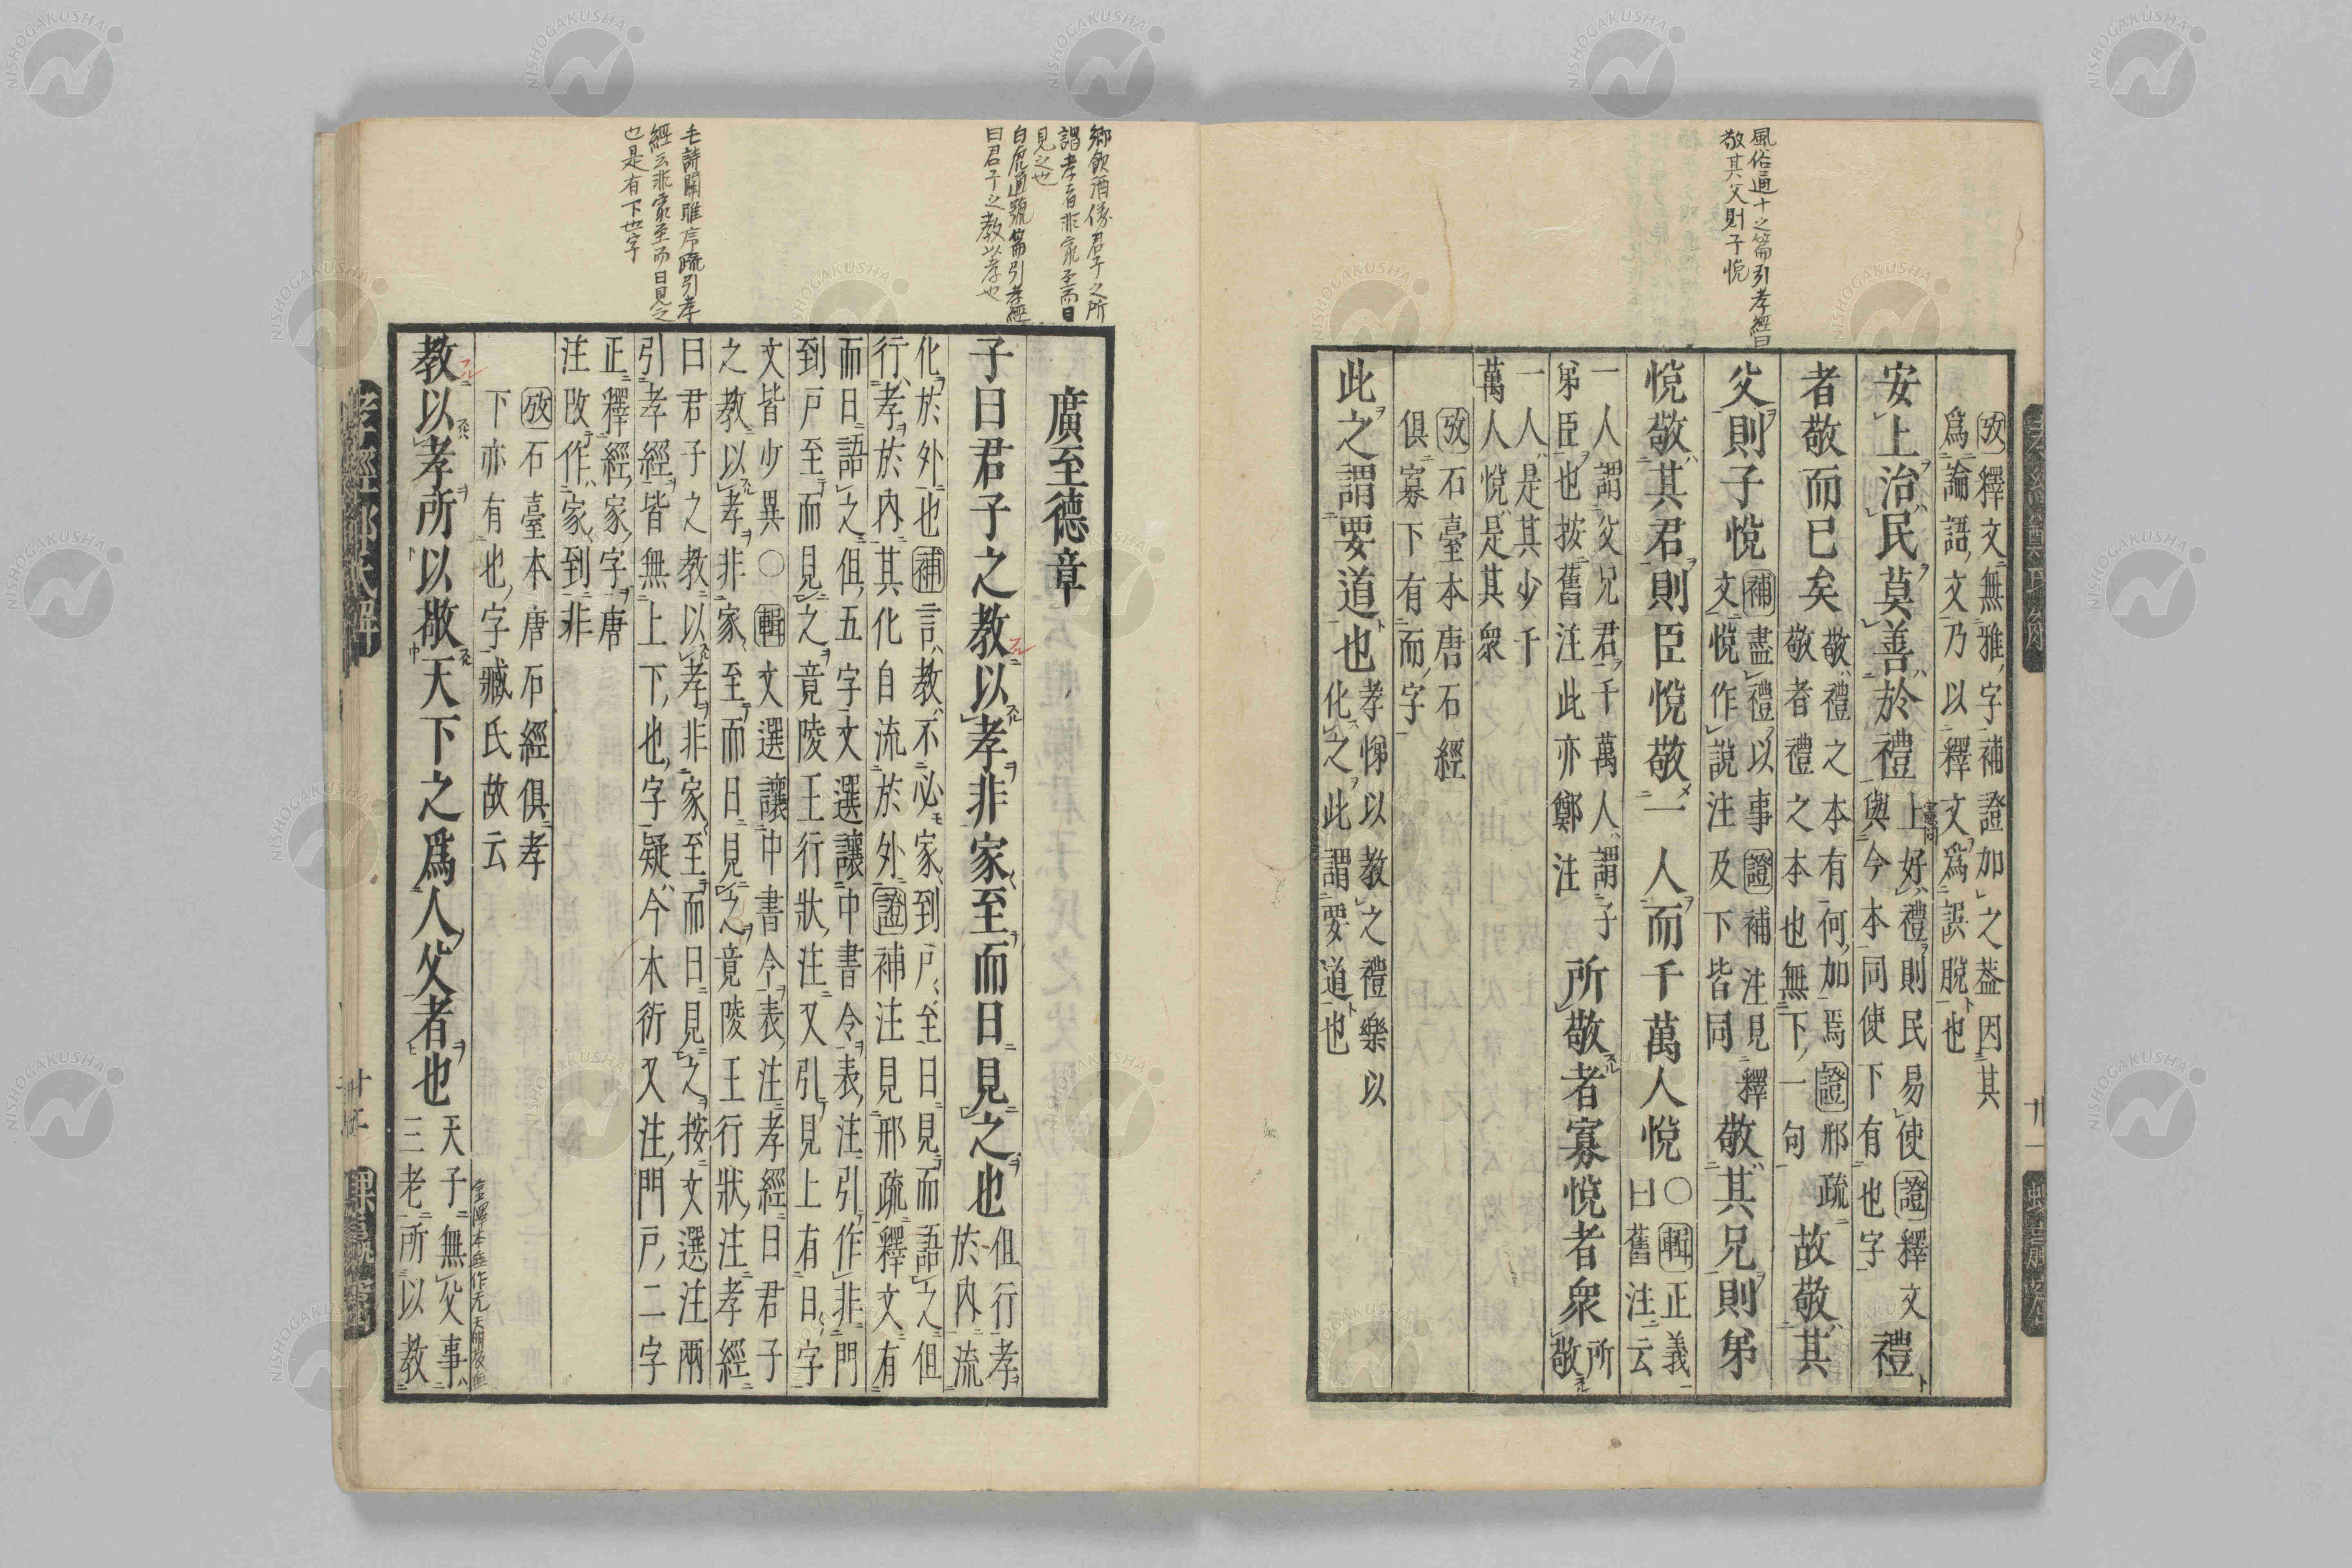 風俗通十之篇引孝經曰
敬其父則子悅
攷釋文無雅字補證加之葢因其
爲論語文乃以釋文爲誤脫也
安上治民莫善於禮上好禮則民易使證釋文禮
與今本同使下有也字
者敬而已矣敬禮之本有何加焉證邢疏故敬其
敬者禮之本也無下一句
父則子悅補盡禮以事證補注見釋敬其兄則弟
文悅作說注及下皆同
悅敬其君則臣悅敬一人而千萬人悅○輯正義
曰舊注云
一人謂父兄君千萬人謂子所敬者寡悅者衆所
弟臣也按舊注此亦鄭注敬
一人是其少千
萬人悅是其衆
攷石臺本唐石經
俱寡下有而字
此之謂要道也孝悌以教之禮樂以
化之此謂要道也
鄉飲酒儀君子之所
謂孝者非家至而日
見之也
白虎通號篇引孝經
曰君子之教以孝也
毛詩關雎序疏引孝
經云非家至而日見之
也是有下也字
廣至德章
子曰君子之教以孝非家至而日見之也但行孝
於內流
化於外也補言教不必家到戶至日見而語之但
行孝於內其化自流於外證補注見邢疏釋文有
而日語之但五字文選讓中書令表注引作非門
到戶至而見之竟陵王行狀注又引見上有日字
文皆少異○輯文選讓中書令表注孝經曰君子
之教以孝非家至而日見之竟陵王行狀注孝經
曰君子之教以孝非家至而日見之按文選注兩
引孝經皆無上下也字疑今本衍又注門戶二字
正釋經家字唐
注改作家到非
攷石臺本唐石經俱孝
下亦有也字臧氏故云
教以孝所以敬天下之爲人父者也天子無父事
三老所以教